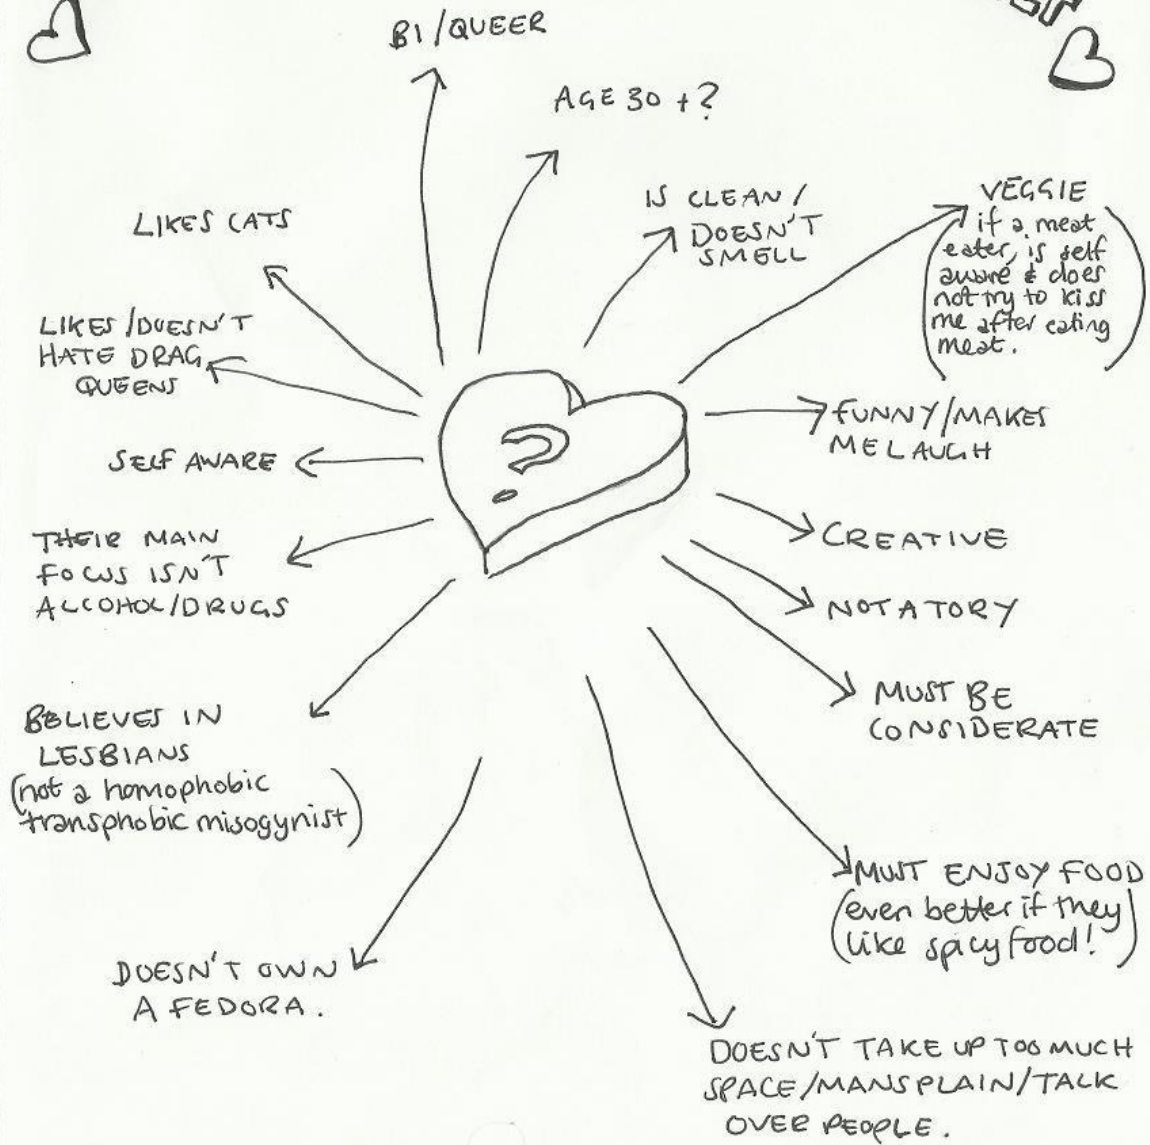 BI/QUEER
AGE 30 + ?
IS CLEAN/
DOESN'T
SMELL
VEGGIE
(if a meat
eater, is self
aware & does
not try to kiss
me after eating
meat.)
LIKES CATS
LIKES/DOESN'T
HATE DRAG
QUEENS
?
FUNNY/MAKES
ME LAUGH
SELF AWARE
CREATIVE
THEIR MAIN
FOCUS ISN'T
ALCOHOL/DRUGS
NOT A TORY
MUST BE
CONSIDERATE
BELIEVES IN
LESBIANS
(not a homophobic
transphobic misogynist)
MUST ENJOY FOOD
(even better if they
like spicy food!)
DOESN'T OWN
A FEDORA.
DOESN'T TAKE UP TOO MUCH
SPACE/MANSPLAIN/TALK
OVER PEOPLE.